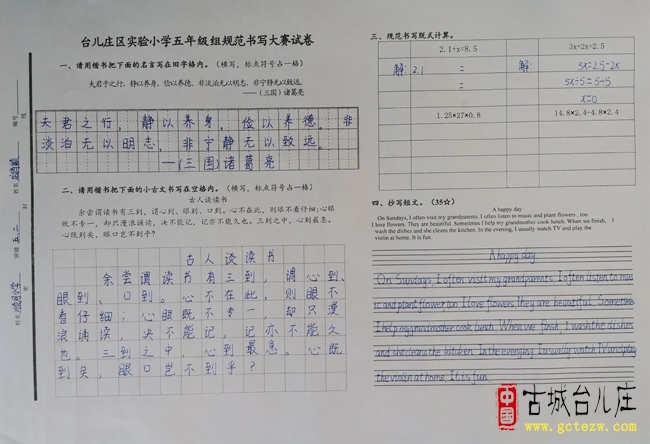 台儿庄区实验小学五年级组规范书写大赛试卷
一、请用楷书把下面的名言写在田字格内。(横写，标点符号占一格)
夫君子之行，静以养身，俭以养德。非淡泊无以明志，非宁静无以致远。
——(三国)诸葛亮
夫君之行，静以养身，俭以养德。非
淡泊无以明志，非宁静无以致远。
—(三国)诸葛亮
二、请用楷书把下面的小古文书写在空格内。(横写，标点符号占一格)
古人谈读书
余尝谓读书有三到，谓心到、眼到、口到。心不在此，则眼不看仔细;心眼
既不专一，却只漫浪诵读，决不能记，记亦不能久也。三到之中，心到最急。
心既到矣，眼口岂不到乎?
古人谈读书
余尝谓读书有三到，谓心到、
眼到、口到。心不在此，则眼不
看仔细;心眼既不专一，却只漫
浪诵读，决不能记，记亦不能久
也。三到之中，心到最急。心既
到矣，眼口岂不到乎?
编号
姓名
班级 五.二
校名
三、规范书写脱式计算。
2.1+x=8.5
3x+2x=2.5
解: 2.1 =
=
解: 5x=2.5-2x
5x-5=5-5
x=0
1.25×27×0.8
14.8×2.4-4.8×2.4
四、抄写短文。(35分)
A happy day
On Sundays, I often visit my grandparents. I often listen to music and plant flowers , too.
I love flowers. They are beautiful. Sometimes I help my grandmother cook lunch. When we finish, I
wash the dishes and she cleans the kitchen. In the evening, I usually watch TV and play the
violin at home. It is fun.
A happy day
On Sundays, I often visit my grandparents. I often listen to mus
and plant flower too. I love flowers. they are beautiful. Sometimes
I help my grandmother cook lunch. When we finish, I wash the dishes
and she cleans the kitchen. In the evening, I usually watch TV and play
the violin at home. It is fun.
中国
古城台儿庄
www.gctezw.com